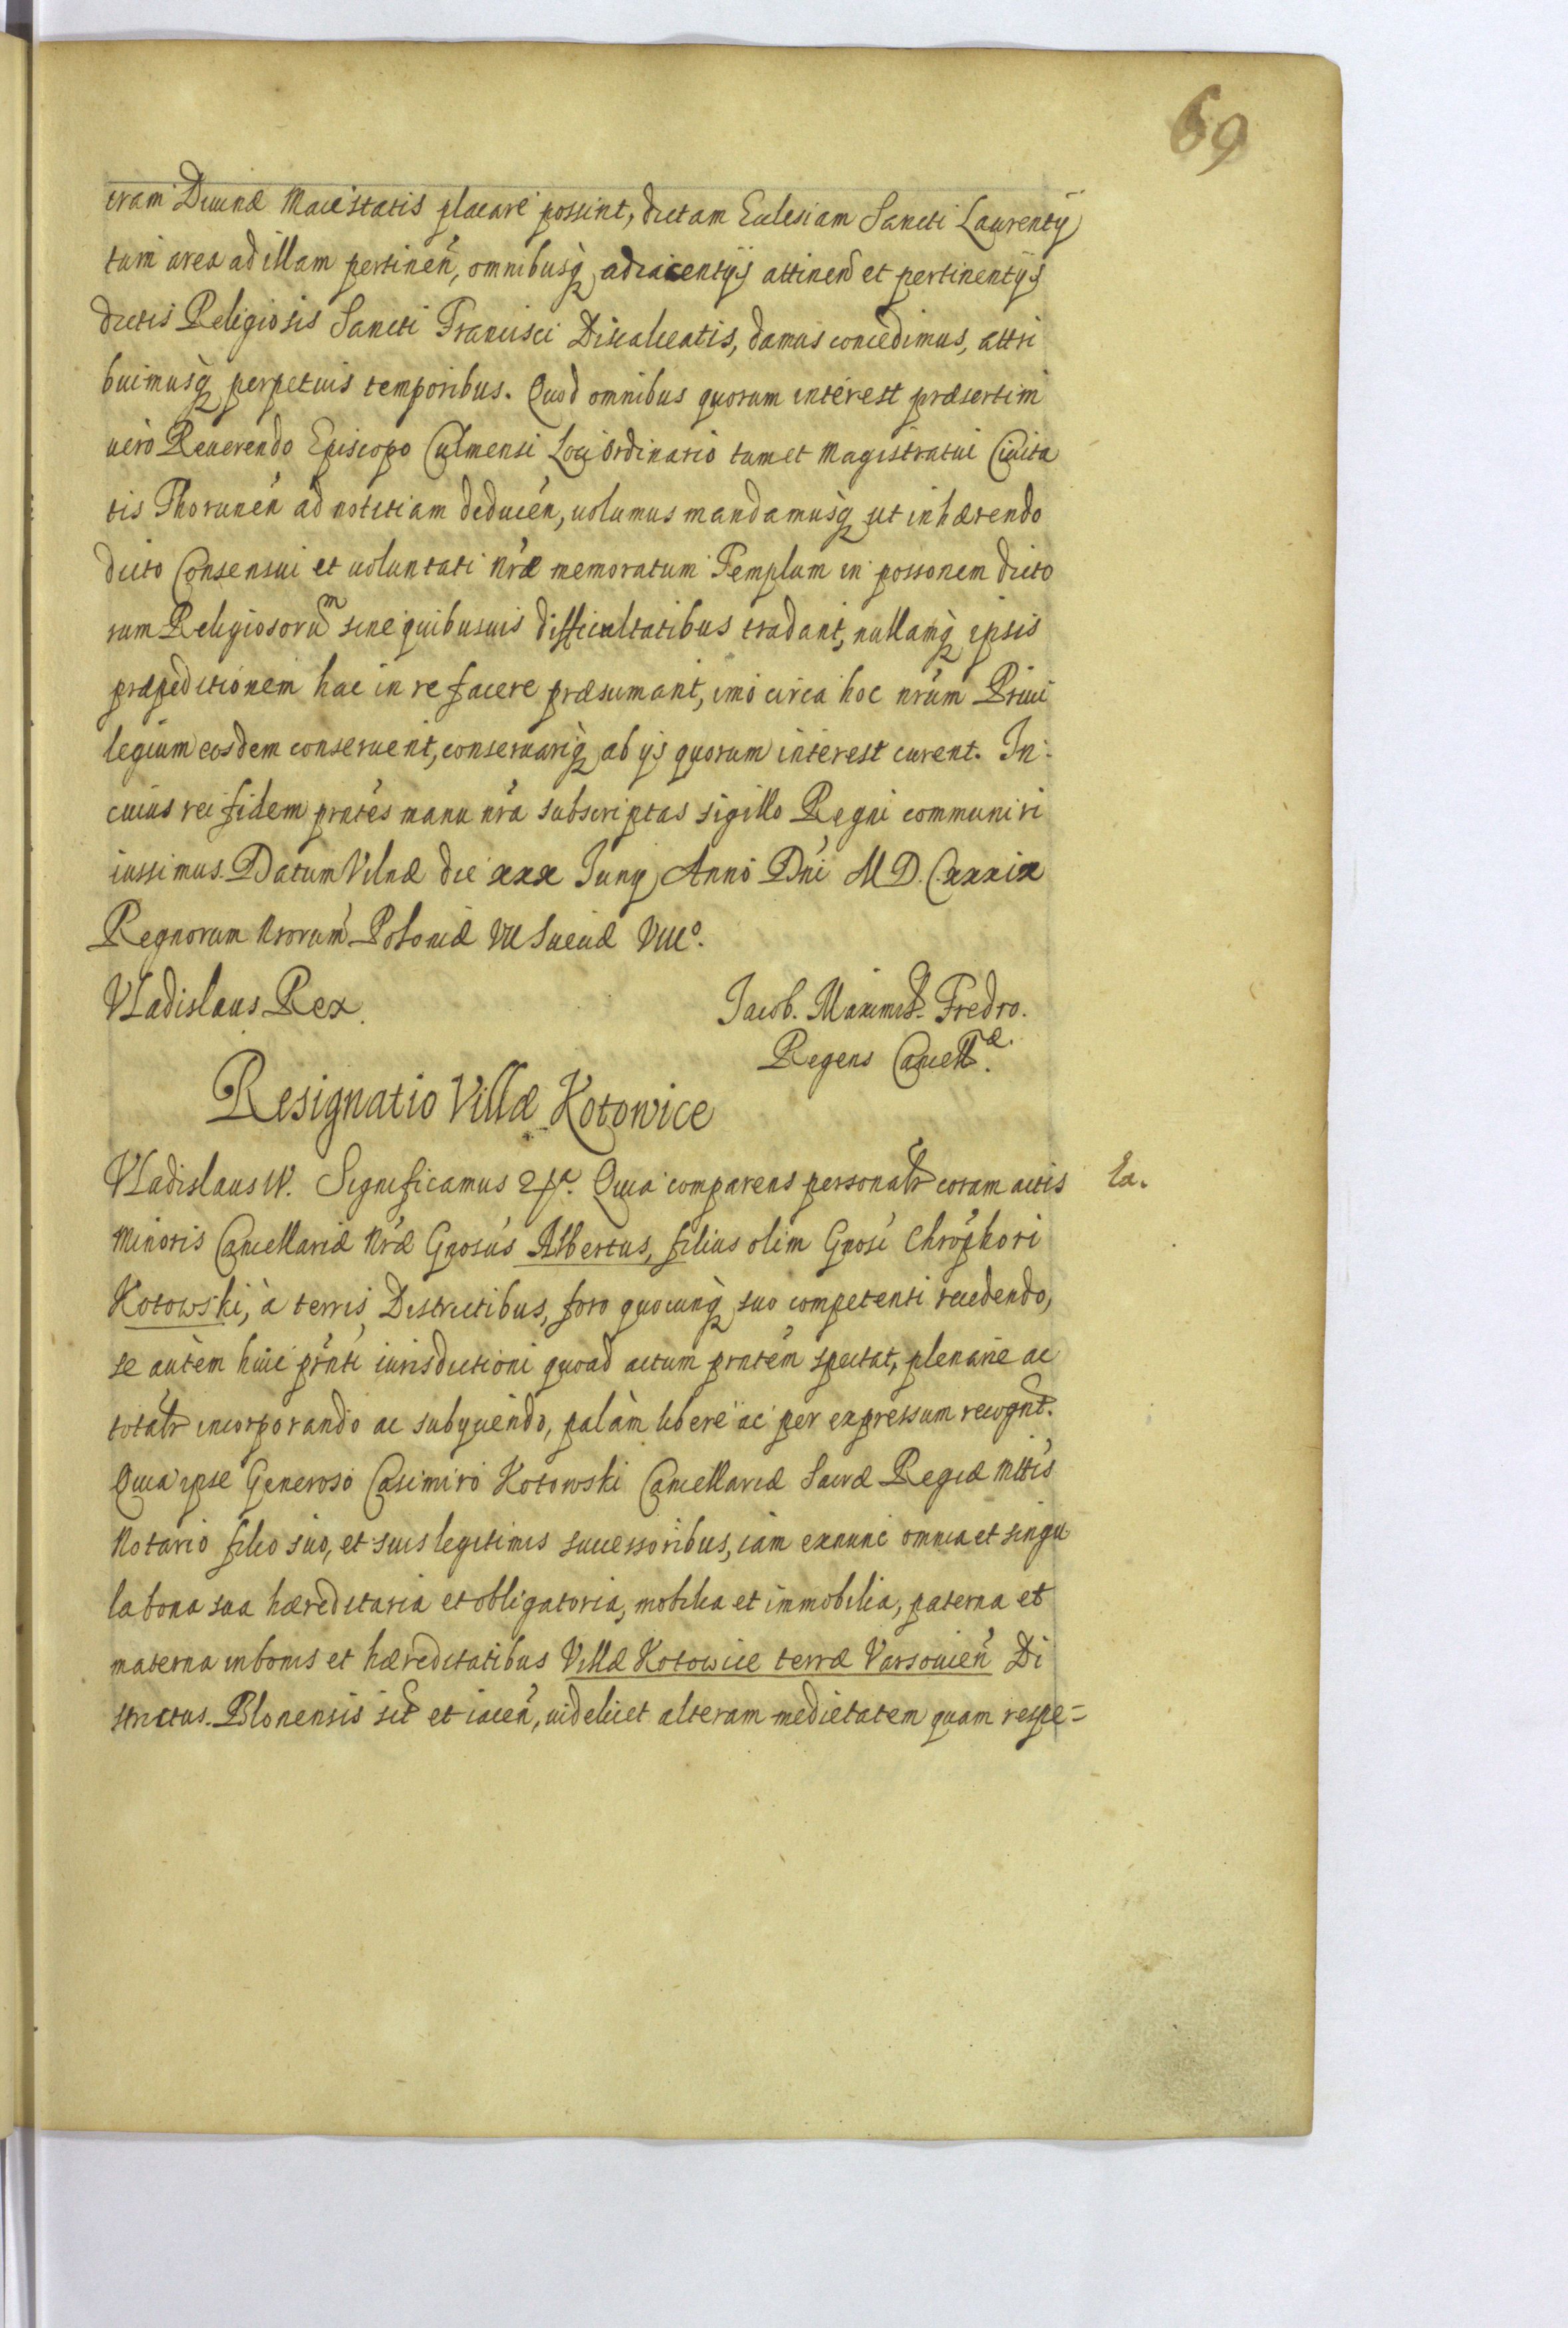 69
iram Diuinæ Maiestatis placare possint, dictam Ecclesiam Sancti Laurentij
tum area ad illam pertinen̄, omnibusq̀ʒ adiacentijs attinen̄ et pertinentijs
dictis Religiosis Sancti Francisci Discalceatis, damus concedimus, attri
buimusq̀ʒ perpetuis temporibus. Quod omnibus quorum interest præsertim
uèro Reuerendo Episcopo Culmensi Loci Ordinario tum et Magistratui Ciuita
tis Thorunen̄ ad notitiam deducen̄, uolumus mandamusq̀ʒ ut inhærendo
dicto Consensui et uoluntati nr̄æ memoratum Templum in possonem dicto
rum Religiosorum sine quibusuis difficultatibus tradant, nullamq̀ʒ ipsis
præpeditionem hac in re facere præsumant, imò circa hoc nr̄um Priui
legium eosdem conseruent, conseruariq̀ʒ ab ijs quorum interest curent. In
cuius rei fidem prn̄tes manu nr̄a subscriptas sigillo Regni communiri
iussimus. Datum Vilnæ die xxx Iunij Anno Dn̄i M D. Cxxxix
Regnorum Nrorum̄ Poloniæ VII Sueciæ VIIIº.
Vladislaus Rex.
Jacob. Maximil. Fredro.
Regens Cancell.æ
Resignatio Villæ Kotowice
Vladislaus IV. Significamus &c. Quia comparens personalr̄ coram actis
Ea.
Minoris Cancellariæ Nr̄æ Gnosús Albertus, filius olim Gnosí Chrōphori
Kotowski, à terris Districtibus, foro quocunq̀ʒ suo competenti recedendo,
se autèm huic prn̄ti iurisdictioni quoad actum prntem̄ spectat, plenarie ac
totalr̄ incorporando ac subijciendo, palàm libere ac per expressum recognt.
Quia ipse Generoso Casimiro Kotowski Cancellariæ Sacræ Regiæ Mttis
Notario filio suo, et suis legitimis successoribus, iam exnunc omnia et singu
la bona sua hæreditaria et obligatoria, mobilia et immobilia, paterna et
materna in bonis et hæreditatibus Villæ Kotowice terræ Varsouien̄ Di
strictus Blonensis sit et iacen̄, uidelicet alteram medietatem quam respe=